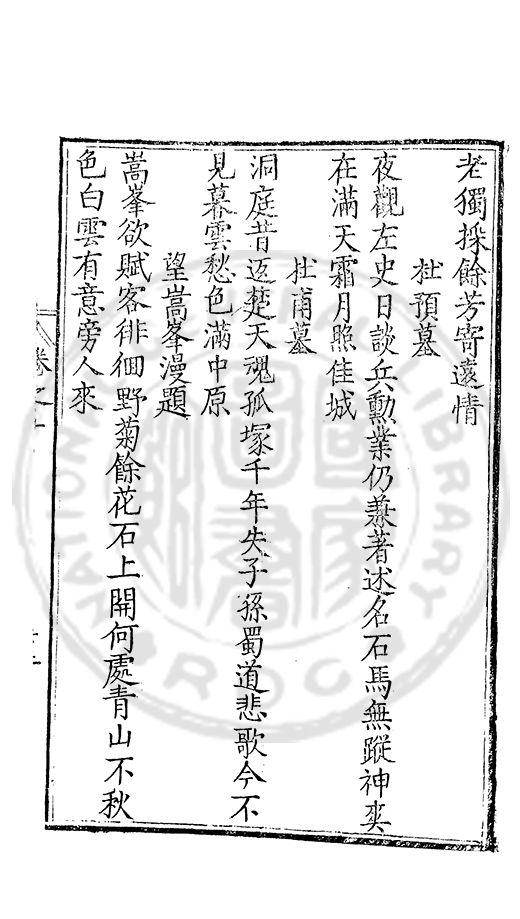 老獨採餘芳寄遠情
杜預墓
夜觀左史日談兵勳業仍兼著述名石馬無蹤神爽
在滿天霜月照佳城
杜甫墓
洞庭昔返楚天魂孤塚千年失子孫蜀道悲歌今不
見暮雲愁色滿中原
望嵩峯漫題
嵩峯欲賦客徘徊野菊餘花石上開何處青山不秋
色白雲有意旁人來
卷之